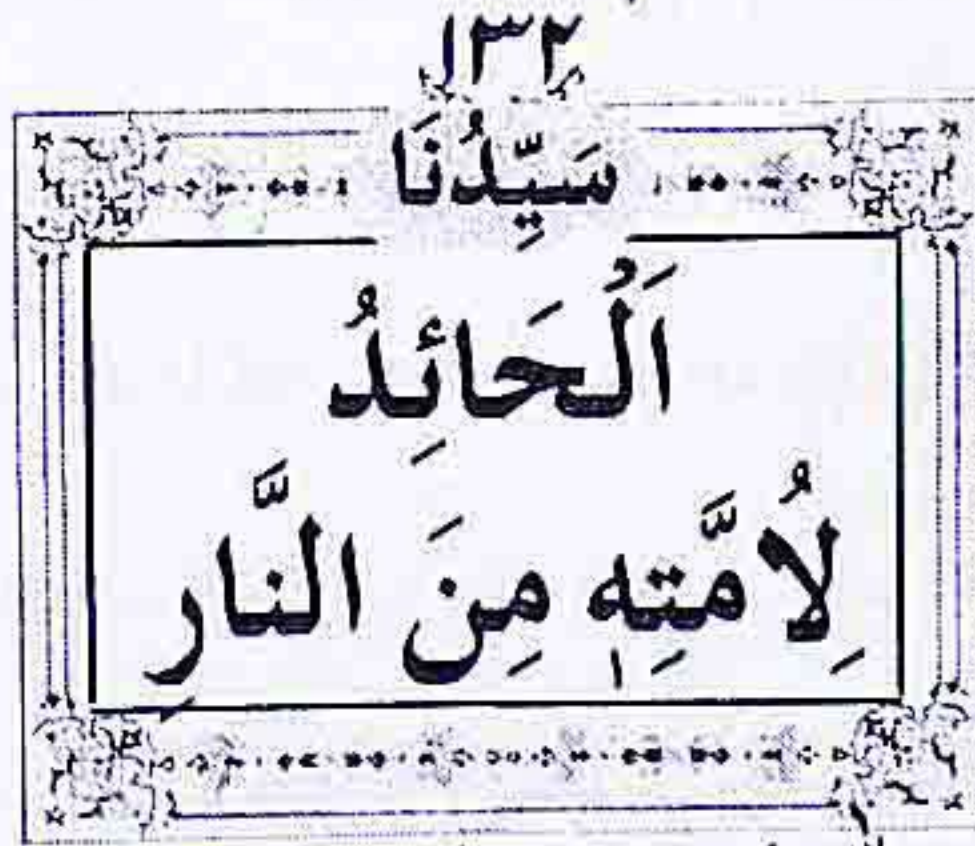 ١٣٢
سَيِّدُنَا
اَلْحَائِدُ
لِاُمَّتِهٖ مِنَ النَّارِ